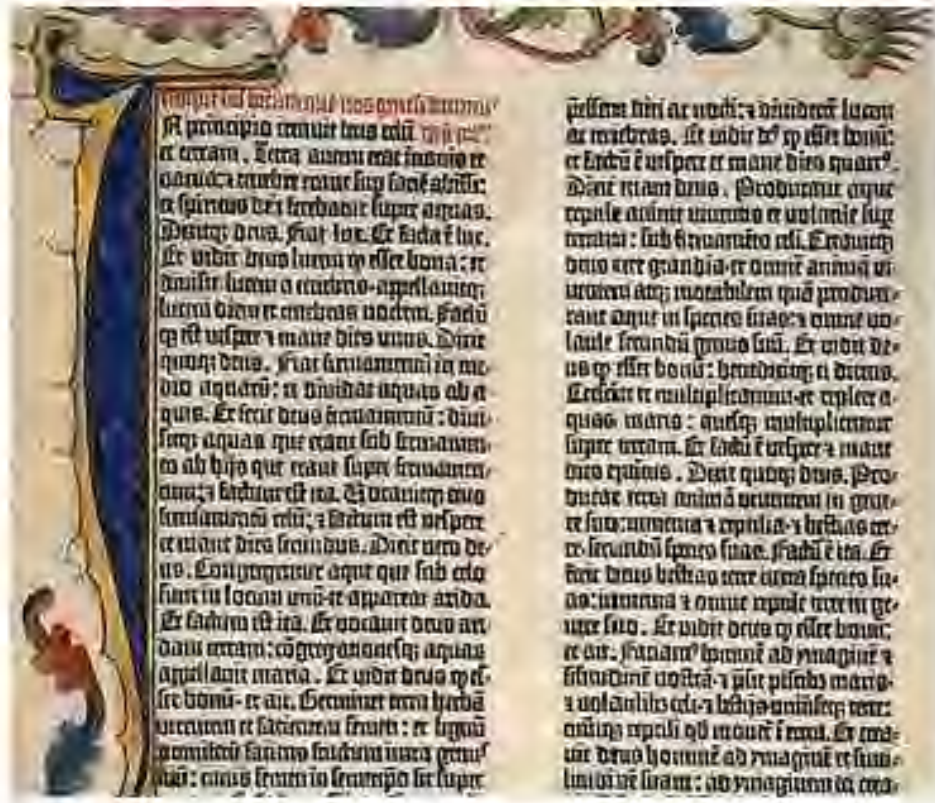 Incipit liber bresith quē nos genesim dicimus
In principio creauit deus celū
et terram. Terra autem erat inanis et
vacua: ⁊ tenebre erant sup faciē abissi:
et spiritus dei ferebatur super aquas.
Dixitq; deus. Fiat lux. Et facta ē lux.
Et vidit deus lucem ꝙ esset bona: et
diuisit lucem a tenebris-appellauitq;
lucem diem et tenebras noctem. Factū
ꝙ est vesper ⁊ mane dies unus. Dixit
quoq; deus. Fiat firmamentū in me-
dio aquarū: et diuidat aquas ab a-
quis. Et fecit deus firmamentū: diui-
sitq; aquas que erant sub firmamen-
to ab hijs que erant super firmamen-
tum: ⁊ factum est ita. Vocauitq; deus
firmamentū celū: ⁊ factum est vesper
et mane dies secundus. Dixit vero de-
us. Congregentur aque que sub celo
sunt in locum unū-et appareat arida.
Et factum est ita. Et vocauit deus ari-
dam terram: cōgregationesq; aquaṝ
appellauit maria. Et vidit deus ꝙ es-
set bonū- et ait. Germinet terra herbā
virentem et facientem semen: et lignū
pomiferū faciens fructum iuxta genus
suū: cuius semen in semetipō sit super
preessent diei ac nocti: ⁊ diuiderēt lucem
ac tenebras. Et vidit deꝰ ꝙ esset bonū:
et factū ē vesper et mane dies quartꝰ.
Dixit etiam deus. Producant aque
reptile anime viuentis et volatile sup
terram: sub firmamēto celi. Creauitq;
deus cete grandia-et omnē animā vi-
uentem atq; motabilem quā produxe-
rant aque in species suas: ⁊ omne vo-
latile secundū genus suū. Et vidit de-
us ꝙ esset bonū: benedixitq; ei dicens.
Crescite et multiplicamini-et replete a-
quas maris: auesq; multiplicentur
super terram. Et factū ē vesper ⁊ mane
dies quintus. Dixit quoq; deus. Pro-
ducat terra animā viuentem in gene-
re suo: iumenta ⁊ reptilia-⁊ bestias ter-
re secundū species suas. Factū ē ita. Et
fecit deus bestias terre iuxta species su-
as: iumenta ⁊ omne reptile terre in ge-
nere suo. Et vidit deus ꝙ esset bonū:
et ait. Faciamꝰ hominē ad ymaginē ⁊
similitudinē nostrā-⁊ p̄sit piscibꝰ maris-
⁊ volatilibꝰ celi-⁊ bestijs uniūseq; terre:
omīq; reptili qd mouet ī terra. Et crea-
uit deus hominē ad ymaginē et simi-
litudinē suam: ad ymaginem dei crea-